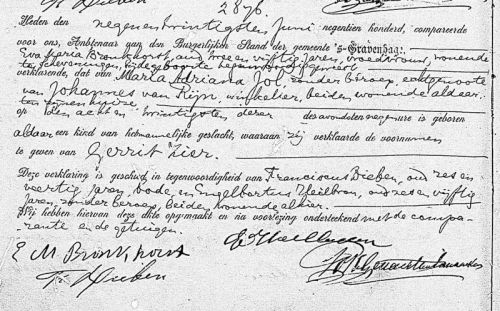 2876.
Heden den negenentwintigsten Juni negentien honderd, compareerde
voor ons, Ambtenaar van den Burgerlijken Stand der gemeente 's-Gravenhage:
Eva Maria Bronkhorst, oud twee en vijftig Jaren, vroedvrouw, wonende
te Scheveningen, bij de geboorte tegenwoordig geweest
verklarende, dat van Maria Adriana Jol, zonder beroep, echtgenoote
van Johannes van Rijn, winkelier, beiden wonende aldaar
ten zijnen huize,
op den acht en twintigsten dezer des avonds ten negen ure is geboren
aldaar een kind van het mannelijke geslacht, waaraan zij verklaarde de voornamen
te geven van Gerrit Zier.
Deze verklaring is geschied in tegenwoordigheid van Franciscus Dieben, oud zes en
veertig Jaren, bode, en Engelbertus Theilbron, oud zes en vijftig
Jaren, zonder beroep, beiden wonende alhier.
Wij hebben hiervan deze akte opgemaakt en na voorlezing onderteekend met de compa-
rante en de getuigen.
E M Bronkhorst
Fr Dieben